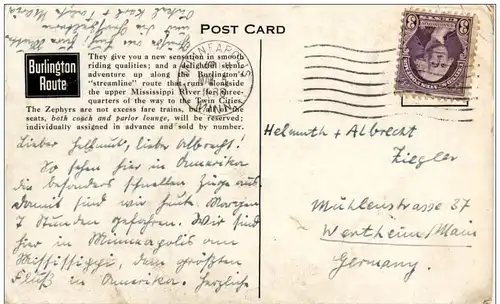 POST CARD
Burlington
Route
They give you a new sensation in smooth
riding qualities; and a delightful scenic
adventure up along the Burlington's
"streamline" route that runs alongside
the upper Mississippi River for three-
quarters of the way to the Twin Cities.
The Zephyrs are not excess fare trains, but all of the
seats, both coach and parlor lounge, will be reserved;
individually assigned in advance and sold by number.
MINNEAPOLIS
MINN.
3
Lieber Hellmut, lieber Albrecht!
So sehen hier in Amerika
die besonders schnellen Züge aus.
Damit sind wir heute Morgen
7 Stunden gefahren. Wir sind
hier in Minneapolis am
Mississippi, dem größten
Fluß in Amerika. Herzliche
Grüße
Helmuth + Albrecht
Ziegler
Mühlenstrasse 37
Wertheim/Main
Germany.